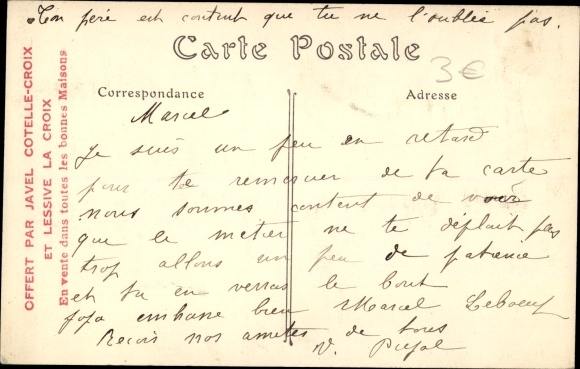 Ton père est content que tu ne l'oublie pas.
Carte Postale
3€
Correspondance
Adresse
Marcel
Je suis un peu en retard
pour te remercier de ta carte
nous sommes content de voir
que le metier ne te déplait pas
trop allons un peu de patience
et tu en verras le bout
embrasse bien Marcel Leboeuf
Reçois nos amitiés de tous
V. Pujol
OFFERT PAR JAVEL COTELLE-CROIX
ET LESSIVE LA CROIX
En vente dans toutes les bonnes Maisons